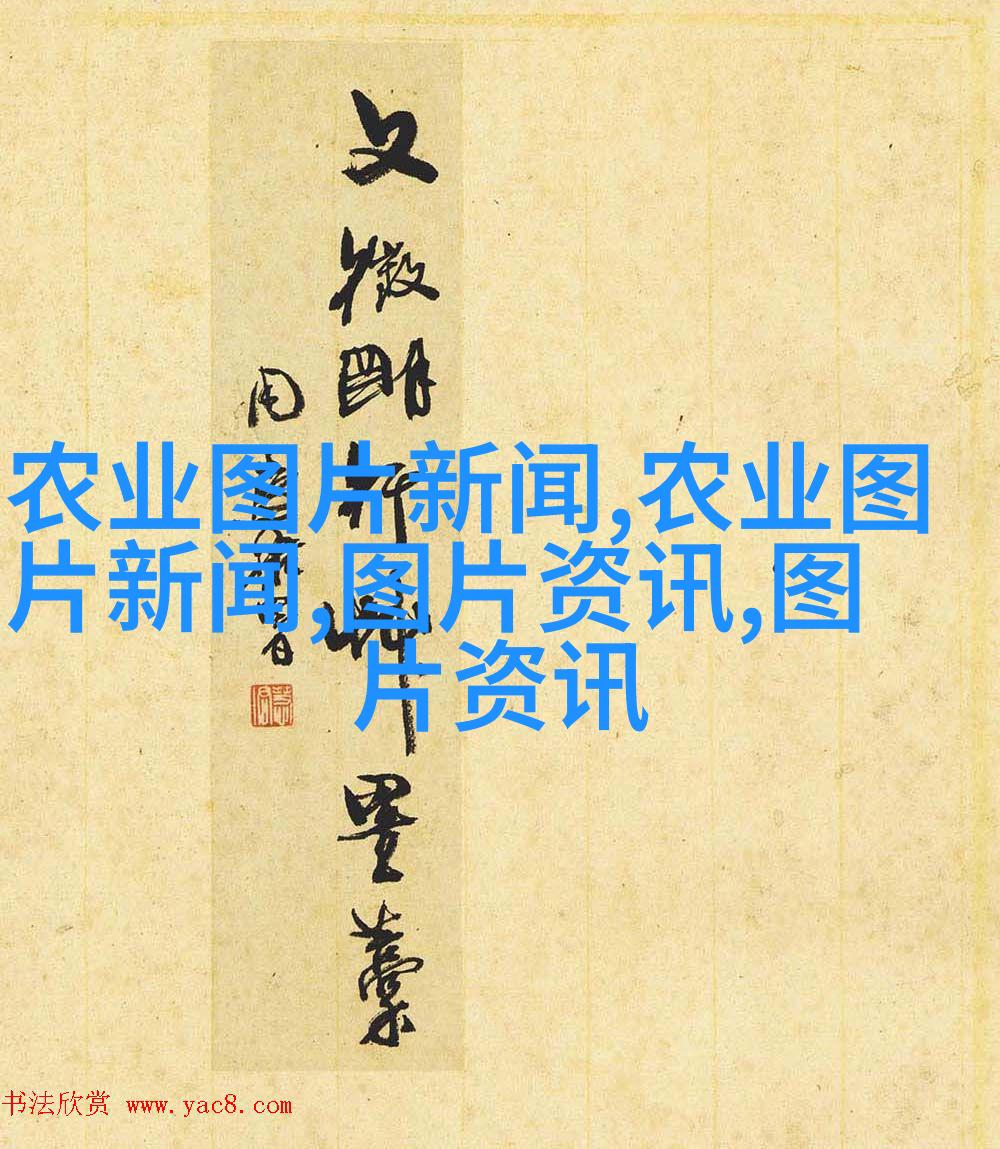 文徵明行草墨藁
农业图片新闻,农业图
片新闻,图片资讯,图
片资讯
书法欣赏 www.yac8.com